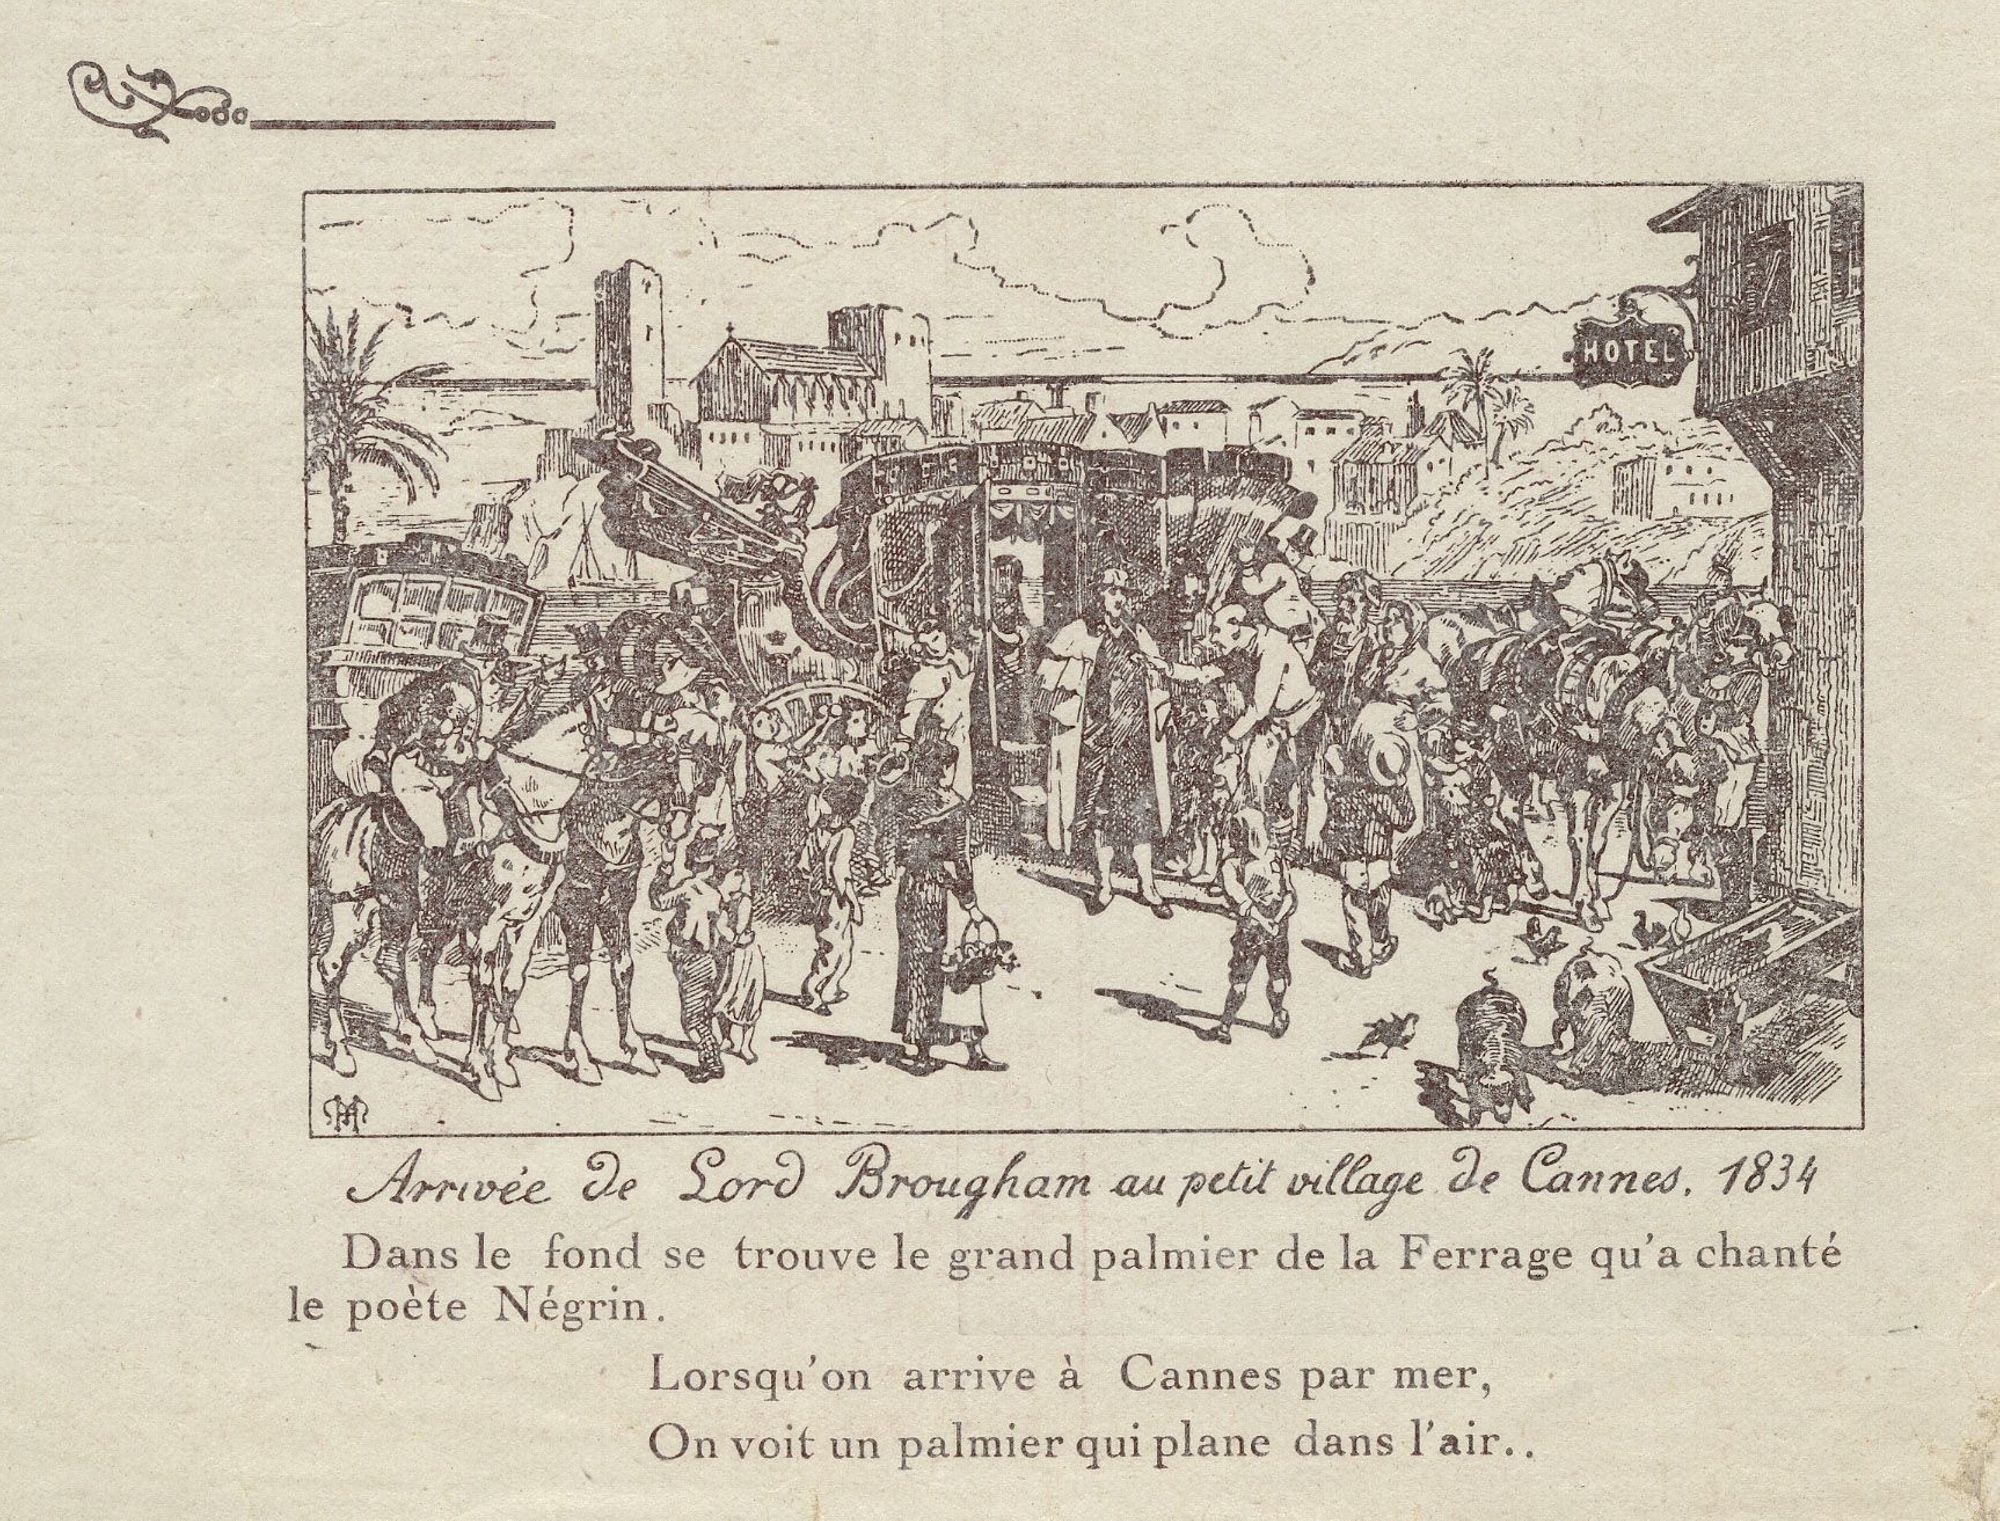 HOTEL
Arrivée de Lord Brougham au petit village de Cannes. 1834
Dans le fond se trouve le grand palmier de la Ferrage qu'a chanté
le poète Négrin.
Lorsqu'on arrive à Cannes par mer,
On voit un palmier qui plane dans l'air..